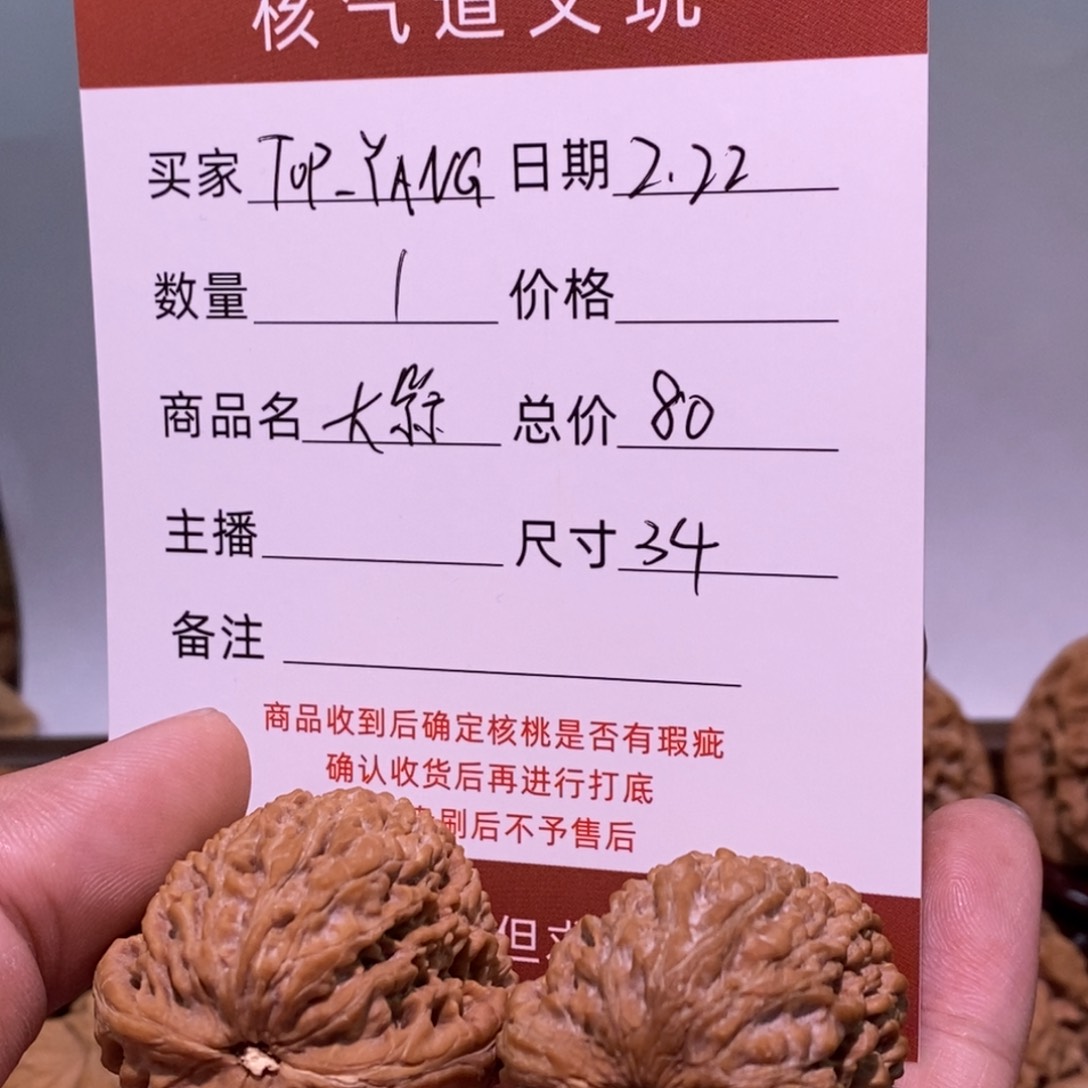 核气道文玩
买家 TOP_YANG 日期 2.22
数量 1 价格
商品名 大 总价 80
主播 尺寸 34
备注
商品收到后确定核桃是否有瑕疵
确认收货后再进行打底
刷后不予售后
但求